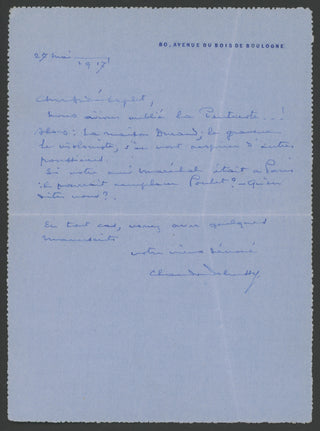 80, AVENUE DU BOIS DE BOULOGNE
27 Mai
1917
Cher André Caplet,
Nous avions oublié la Pentecôte...!
Alors : La maison Durand, le graveur,
le violoniste, s'en vont respirer d'autres
poussières.
Si votre ami Maréchal était à Paris
il pourrait remplacer Poulet? Qu'en
dites vous?
En tout cas, venez avec quelques
manuscrits
votre vieux dévoué
Claude Debussy